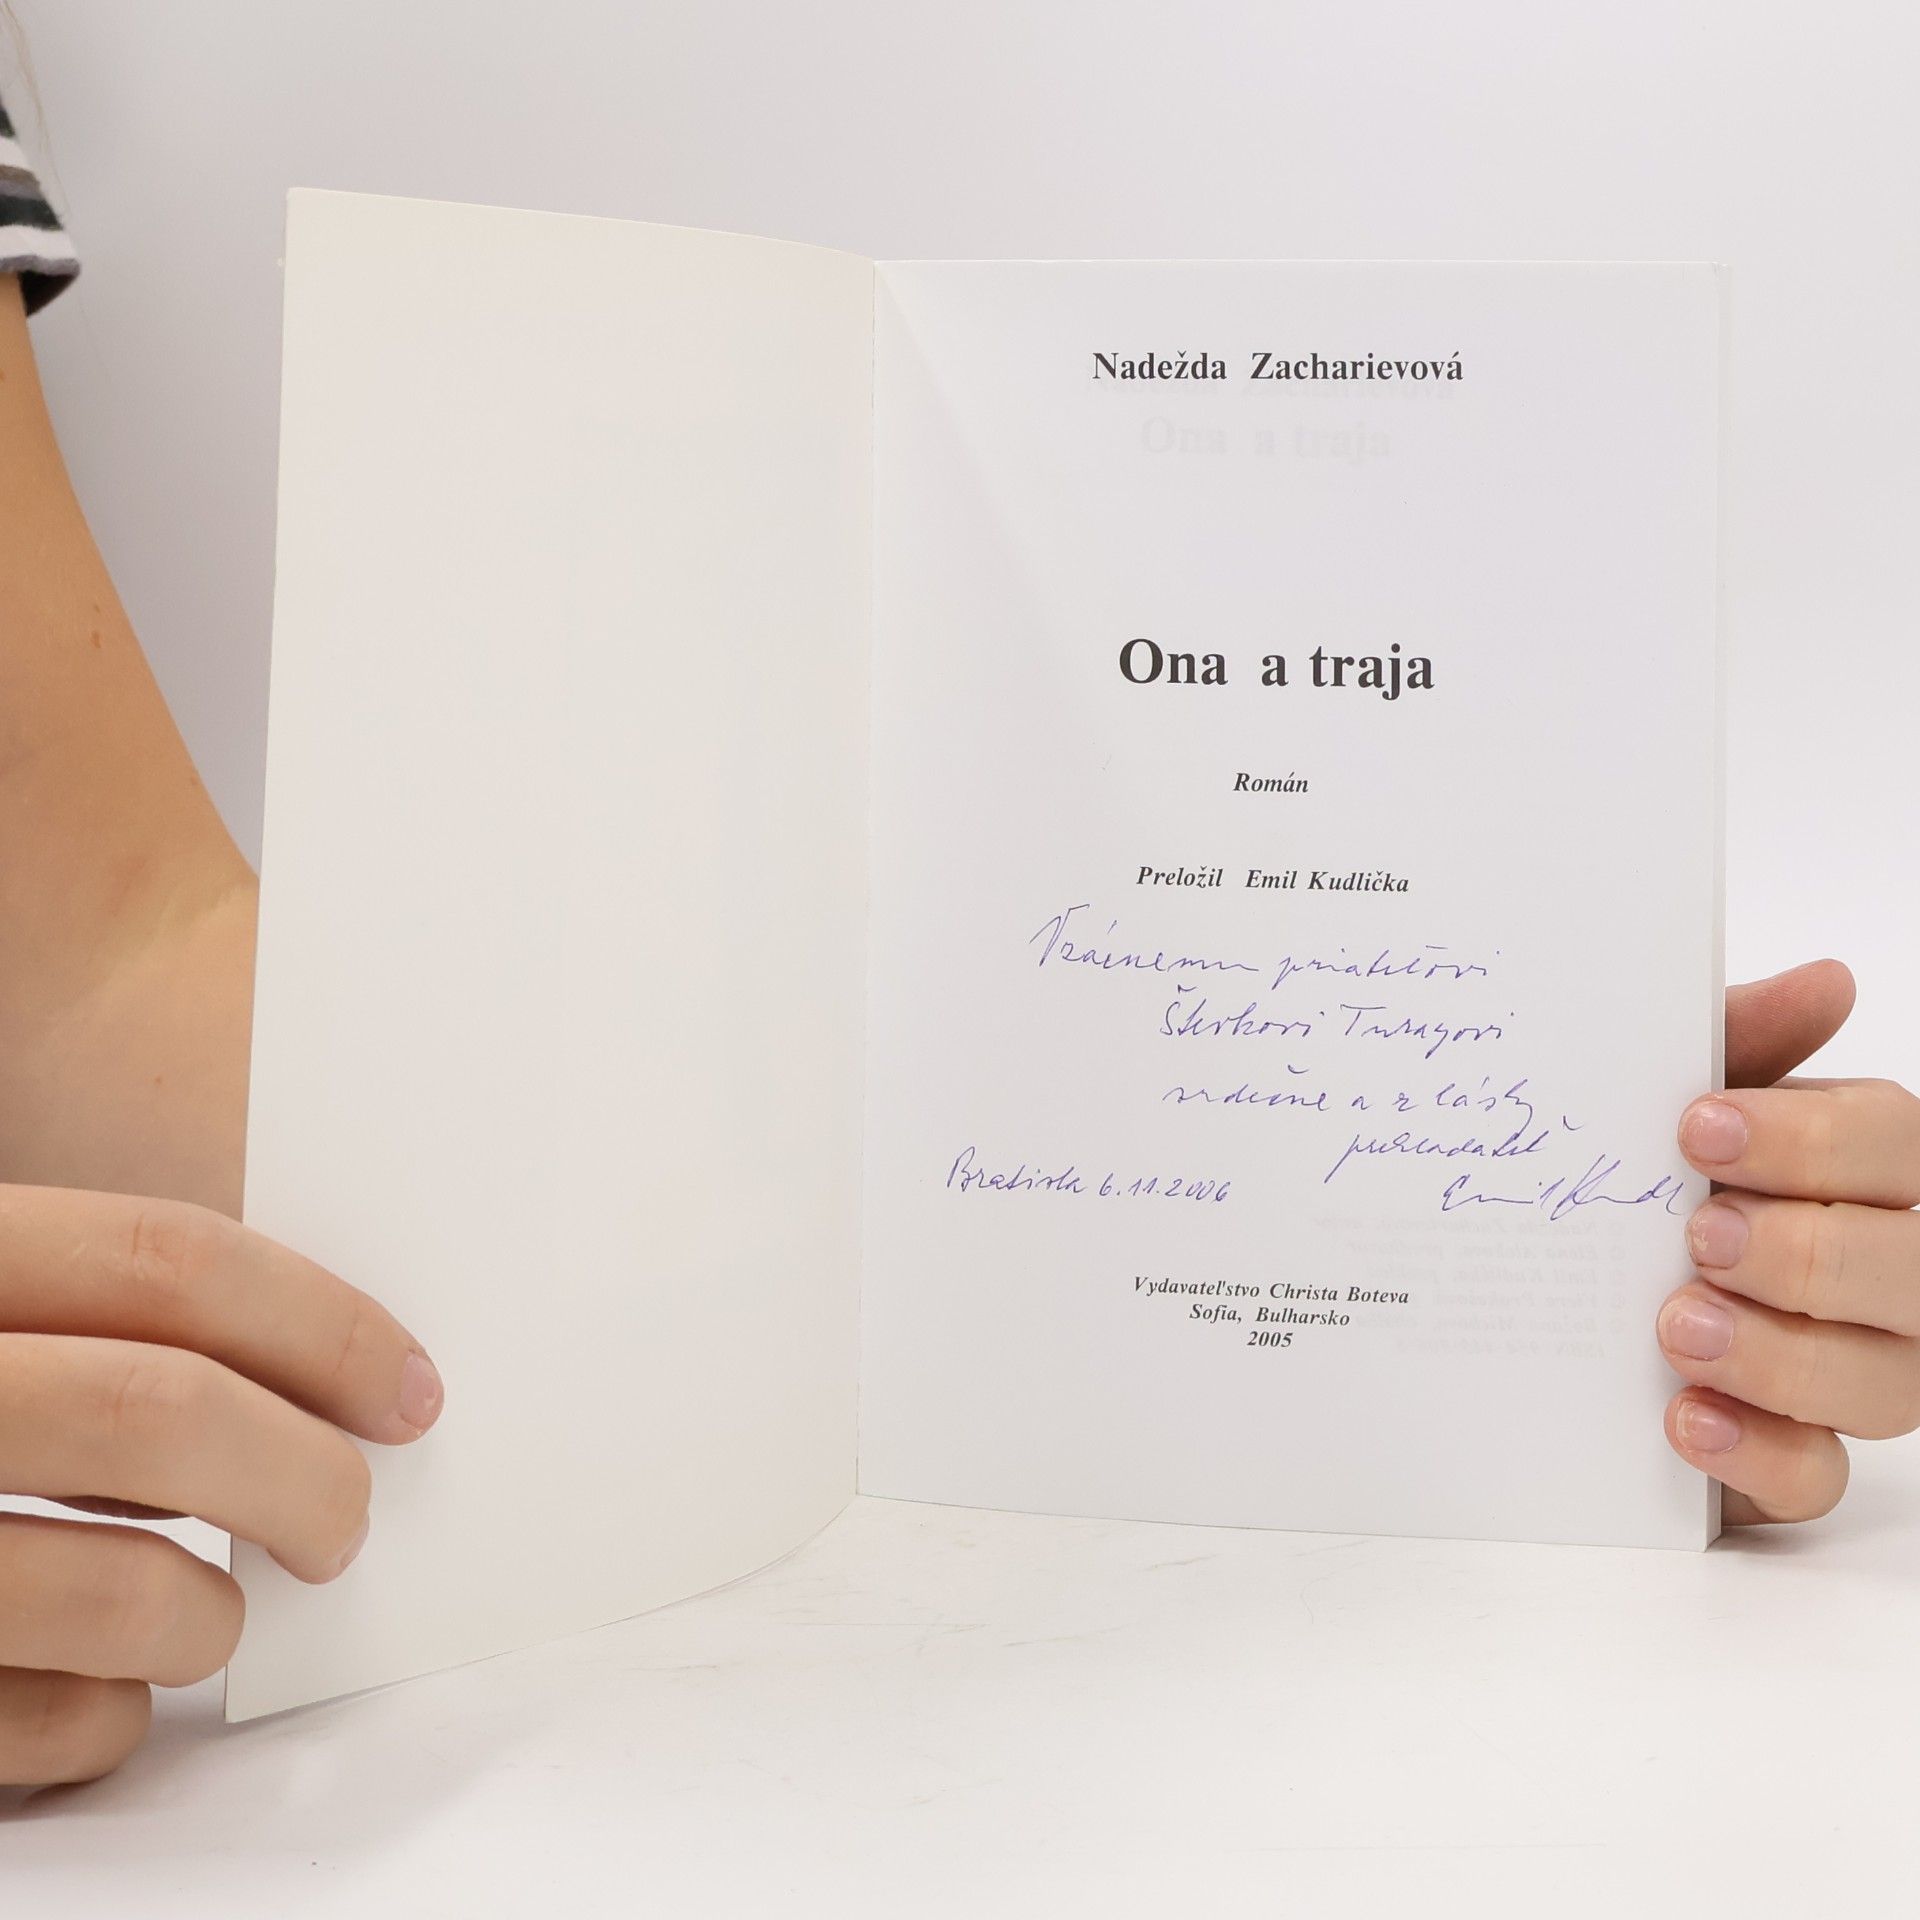 Nadežda Zacharievová
Ona a traja
Román
Preložil Emil Kudlička
Vzácnemu priateľovi
Števkovi Turayovi
srdečne a z lásky
prekladateľ
Bratisla 6.11.2006
Emil Kudl
Vydavateľstvo Christa Boteva
Sofia, Bulharsko
2005